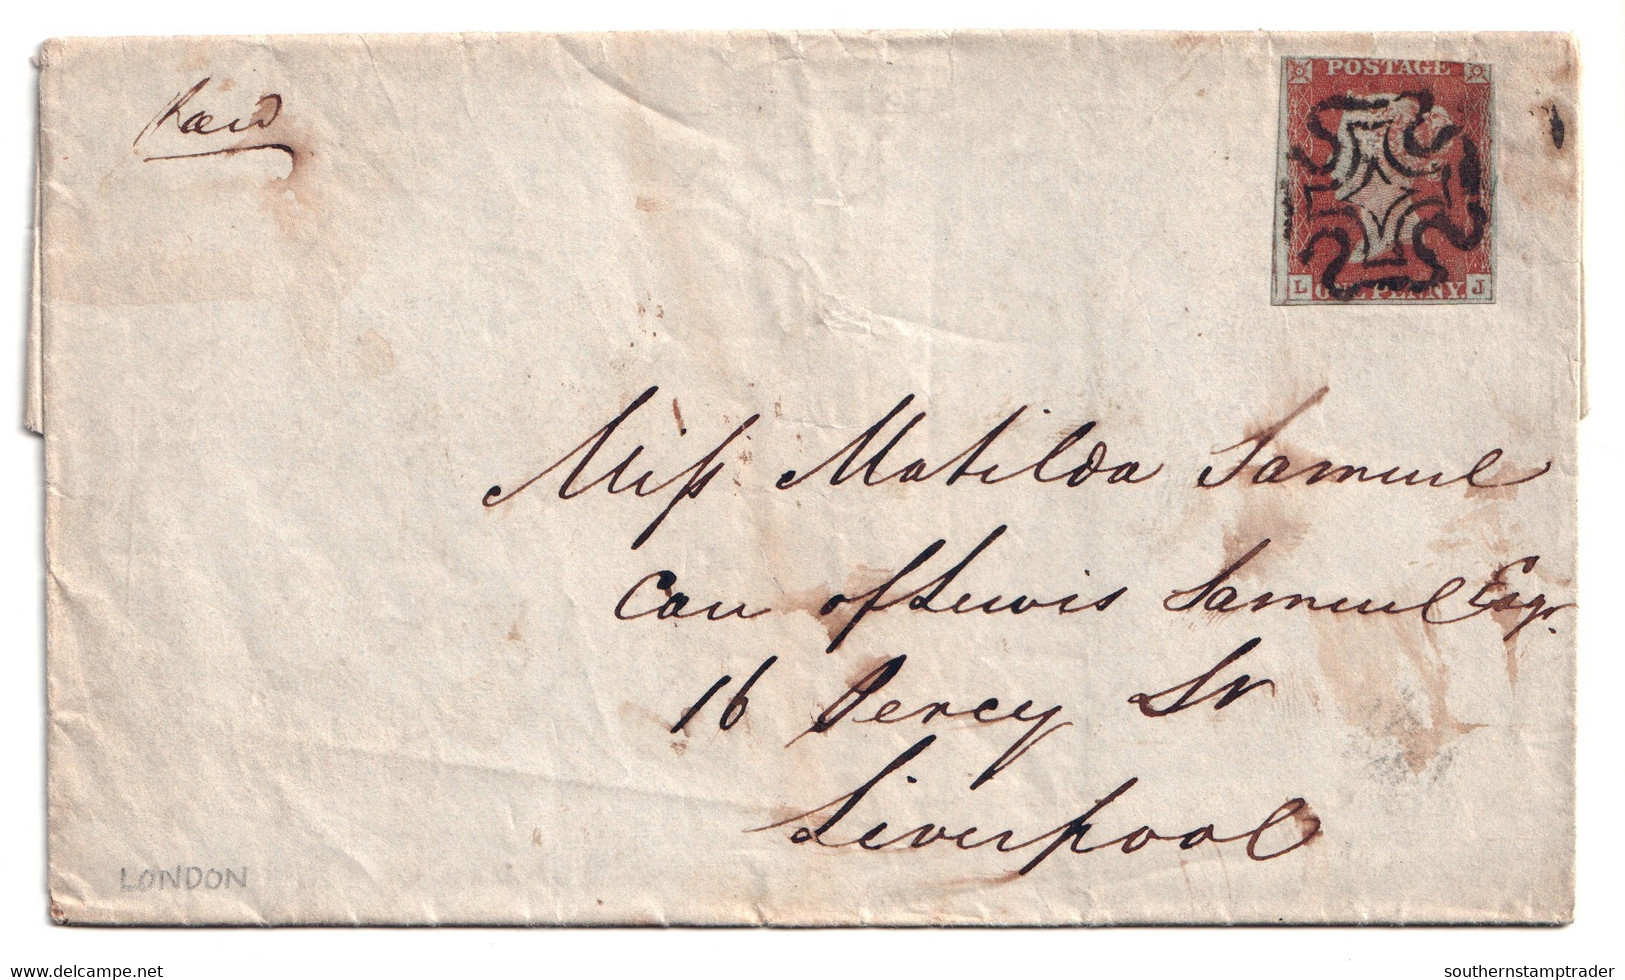 Paid
POSTAGE
L ONE PENNY. J
Miss Matilda Samuel
Care of Lewis Samuel Esqr.
16 Percy St
Liverpool
LONDON
www.delcampe.net
southernstamptrader